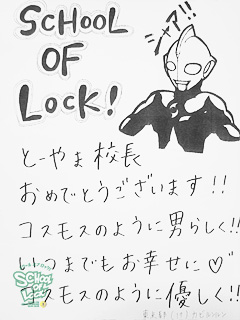 SCHOOL
OF
LOCK!
シャア!!
とーやま校長
おめでとうございます!!
コスモスのように男らしく!!
いつまでもお幸せに♡
コスモスのように優しく!!
SCHOOL
OF
LOCK!